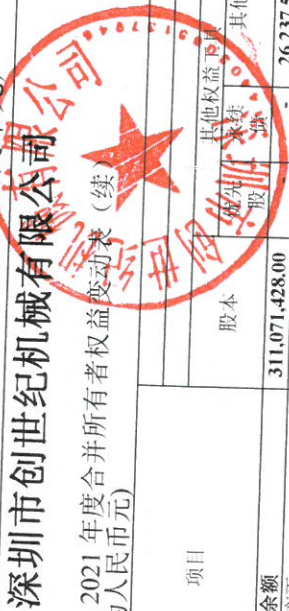 深圳市创世纪机械有限公司
2021 年度合并所有者权益变动表（续）
为人民币元)
项目
股本
其他权益
优先
股
永续
债
其他
余额
311,071,428.00
-
-
26,237,5